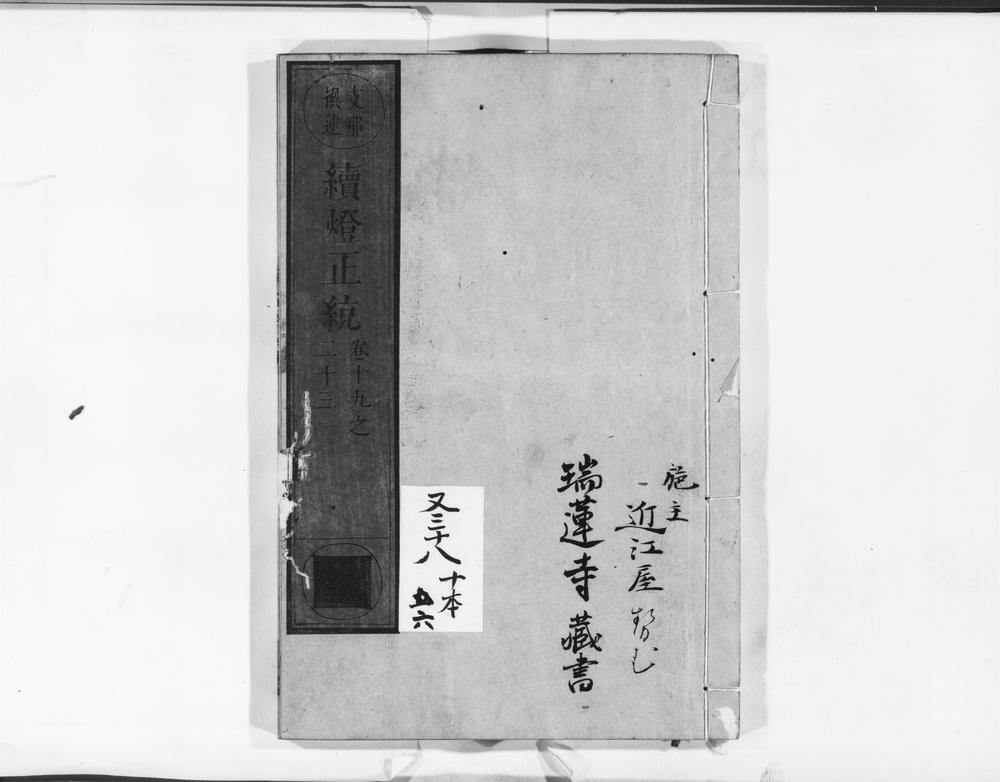 施主
近江屋
瑞蓮寺藏書
又三十八
十本
五六
支那
撰述
續燈正統
卷十九之
二十三